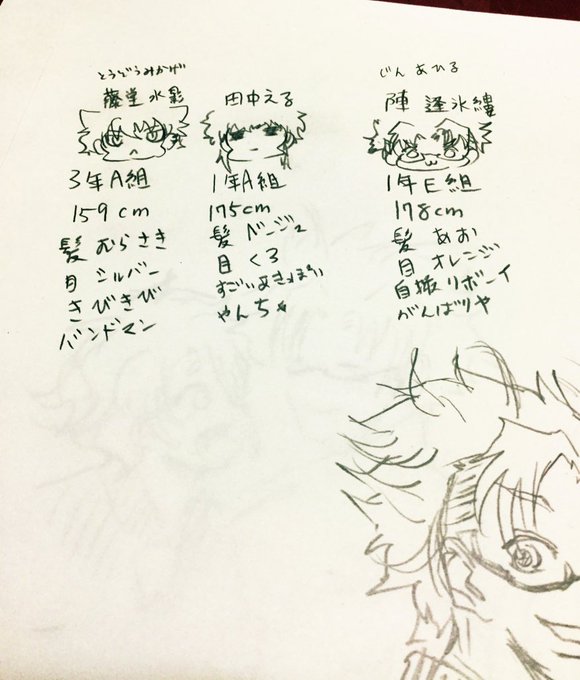 とうどうみかげ
藤堂 水影
3年A組
159cm
髪 むらさき
目 シルバー
きびきび
バンドマン
田中える
1年A組
175cm
髪 ベージュ
目 くろ
すごいあきっぽい
やんちゃ
じん あひる
陣 逢氷縷
1年E組
178cm
髪 あお
目 オレンジ
自撮りボーイ
がんばりや